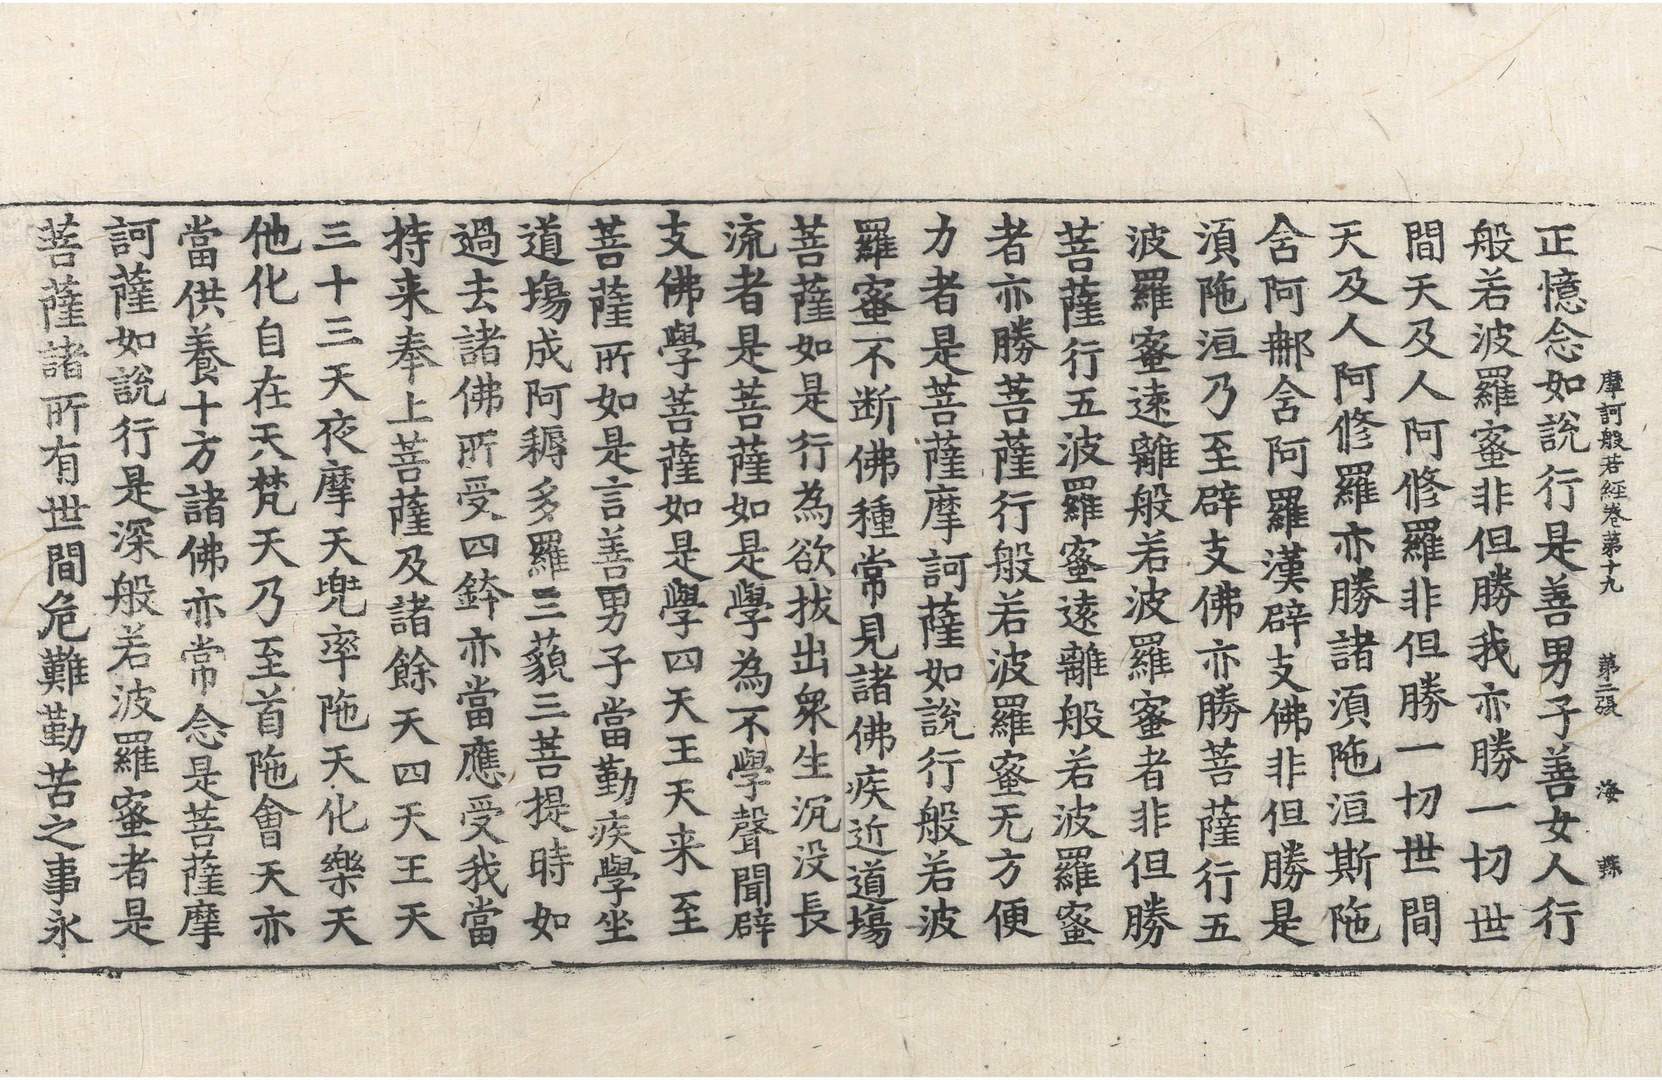 摩訶般若経卷第十九　第二張　海　蘇
正憶念如說行是善男子善女人行
般若波羅蜜非但勝我亦勝一切世
間天及人阿修羅非但勝一切世間
天及人阿修羅亦勝諸湏陁洹斯陁
含阿那含阿羅漢辟支佛非但勝是
湏陁洹乃至辟支佛亦勝菩薩行五
波羅蜜遠離般若波羅蜜者非但勝
菩薩行五波羅蜜遠離般若波羅蜜
者亦勝菩薩行般若波羅蜜无方便
力者是菩薩摩訶薩如說行般若波
羅蜜不断佛種常見諸佛疾近道場
菩薩如是行為欲拔出衆生沉没長
流者是菩薩如是學為不學聲聞辟
支佛學菩薩如是學四天王天来至
菩薩所如是言善男子當勤疾學坐
道場成阿耨多羅三藐三菩提時如
過去諸佛所受四鉢亦當應受我當
持来奉上菩薩及諸餘天四天王天
三十三天夜摩天兜率陁天化樂天
他化自在天梵天乃至首陁會天亦
當供養十方諸佛亦常念是菩薩摩
訶薩如說行是深般若波羅蜜者是
菩薩諸所有世間危難勤苦之事永